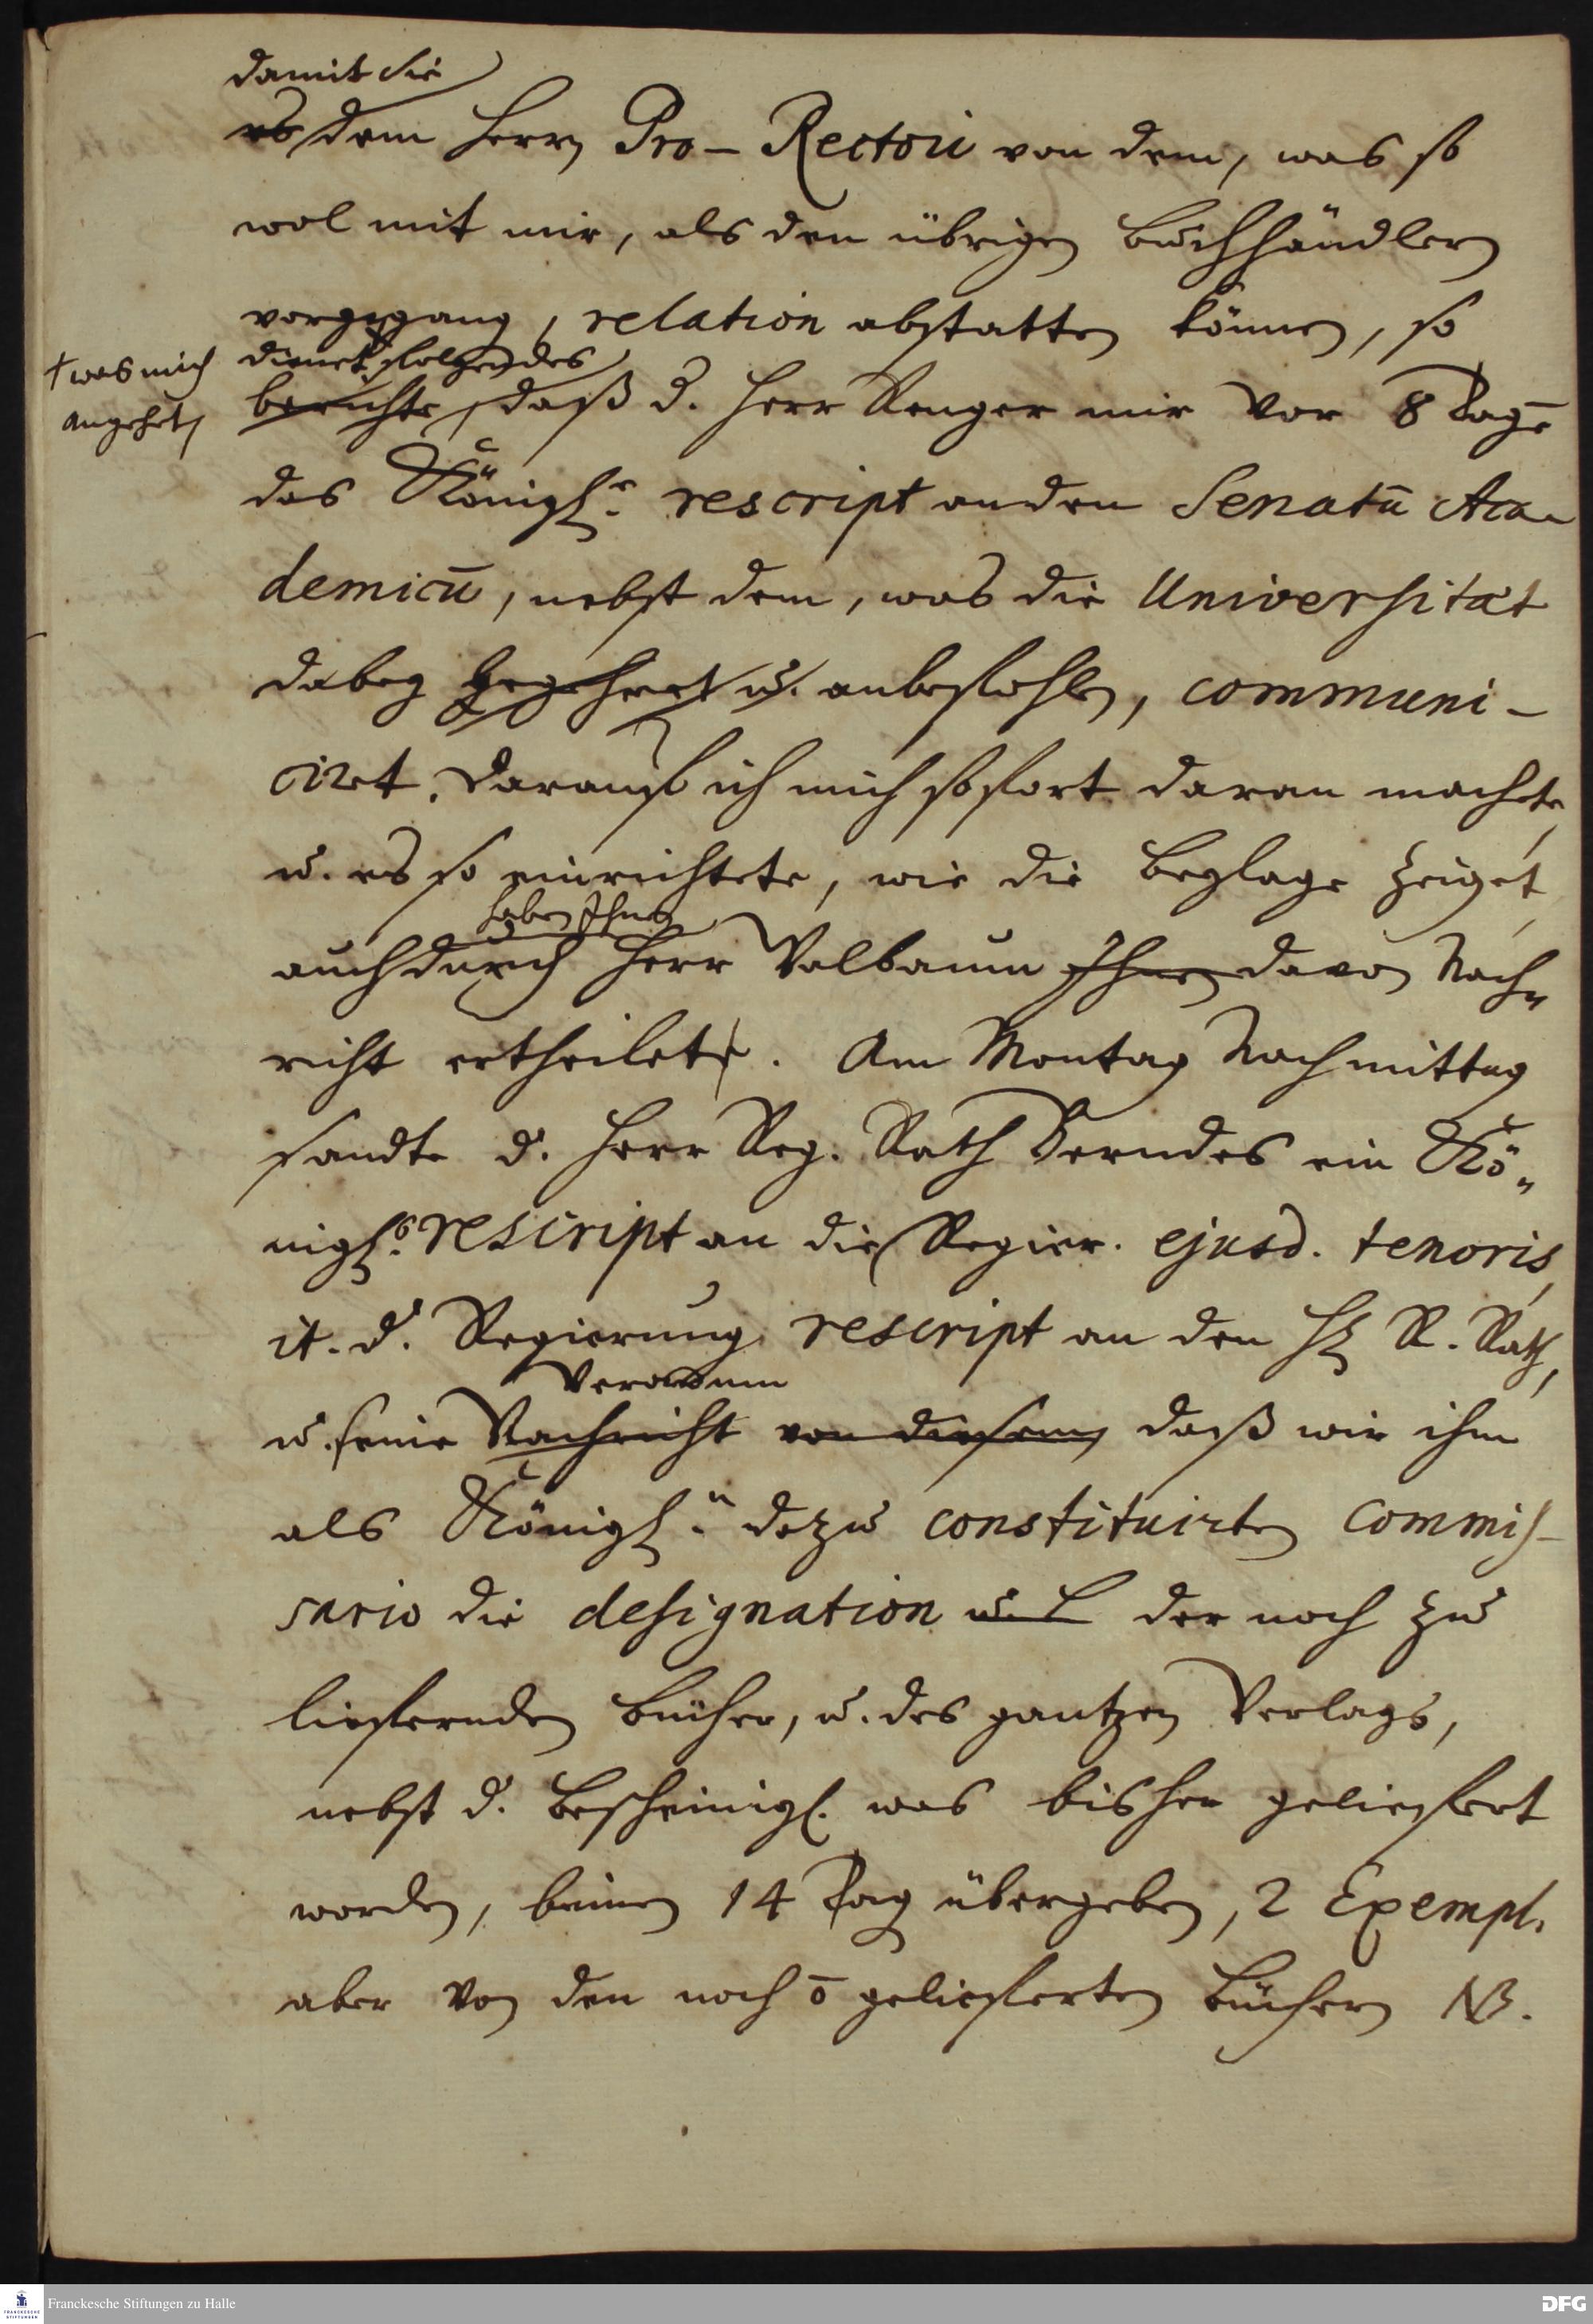 damit Sie
es dem Herrn Pro-Rectori von dem, was so
wol mit mir, als den übrigen Buchhändlern
vorgegangen, relation abstatten können, so
† was mich
angehet,
dienet folgendes
berichte, daß d. Herr Renger mir vor 8 Tagē
das Königl.e rescript an den Senatū Aca-
demicū, nebst dem, was die Universitæt
dabey begehret u. anbefohlen, communi-
cirt. Darauf ich mich sofort daran machte,
u. es so einrichtete, wie die Beylage zeiget,
haben Ihnen
auch durch Herr Valbaum Ihnen davon Nach-
richt ertheilet. Am Montag Nachmittag
sandte d. Herr Reg. Rath Berndes ein Kö-
nigl.s rescript an die Regier. ejusd. tenoris,
it. d. Regierung rescript an den H. R. Rath,
Verordnun
u. seine Nachricht von diesem, daß wir ihm
als Königl.n dazu constituirten Commis-
sario die designation u. der noch zu
liefernden Bücher, u. des gantzen Verlags,
nebst d. Bescheinigl. was bisher geliefert
worden, binnen 14 Tag übergeben, 2 Exempl.
aber von den noch ō gelieferten Büchern NB.
Franckesche Stiftungen zu Halle
FRANCKESCHE
STIFTUNGEN
DFG